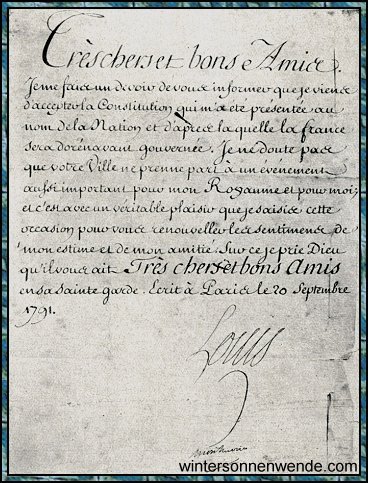 Très chers et bons Amis.
Je me fais un devoir de vous informer que je viens
d'accepter la Constitution qui m'a été présentée au
nom de la Nation et d'après laquelle la france
sera dorénavant gouvernée. Je ne doute pas
que votre Ville ne prenne part à un événement
aussi important pour mon Royaume et pour moi;
et c'est avec un véritable plaisir que je saisis cette
occasion pour vous renouveller les sentimens de
mon estime et de mon amitié. Sur ce je prie Dieu
qu'il vous ait Très chers et bons Amis
en sa sainte garde. Ecrit à Paris le 20 Septembre
1791.
Louis
Montmorin
wintersonnenwende.com